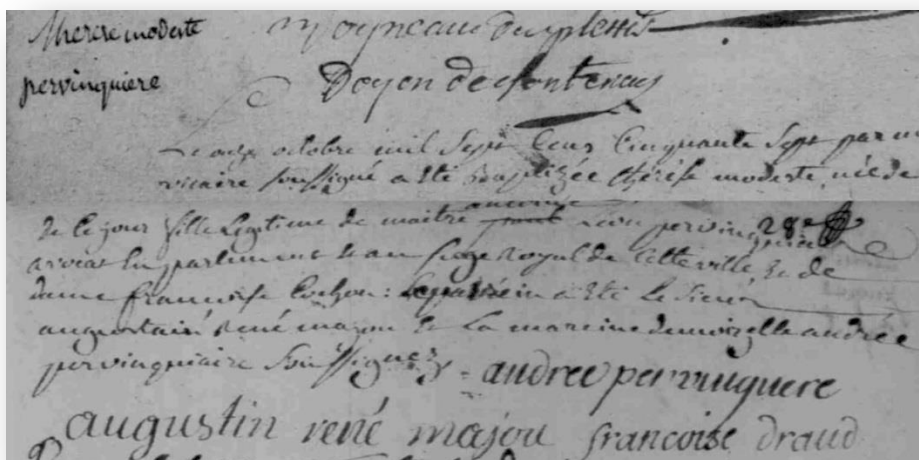 Therese modeste
pervinquiere
Moyneau duplessis
Doyen de fontenay
Le onze octobre mil Sept Cens Cinquante Sept par n
vicaire Soussigné a été baptizée thérése modeste née de
de ce jour fille Legitime de maitre Leon pervinquiere
avocat En parlement & au siege Royal de Cette ville & de
dame francoise Cochon : Le parein a été le Sieur
augustain rené majou & La mareine demoizelle andrée
pervinquiaire Soussignez
andree pervinquiere
augustin rené majou francoise draud